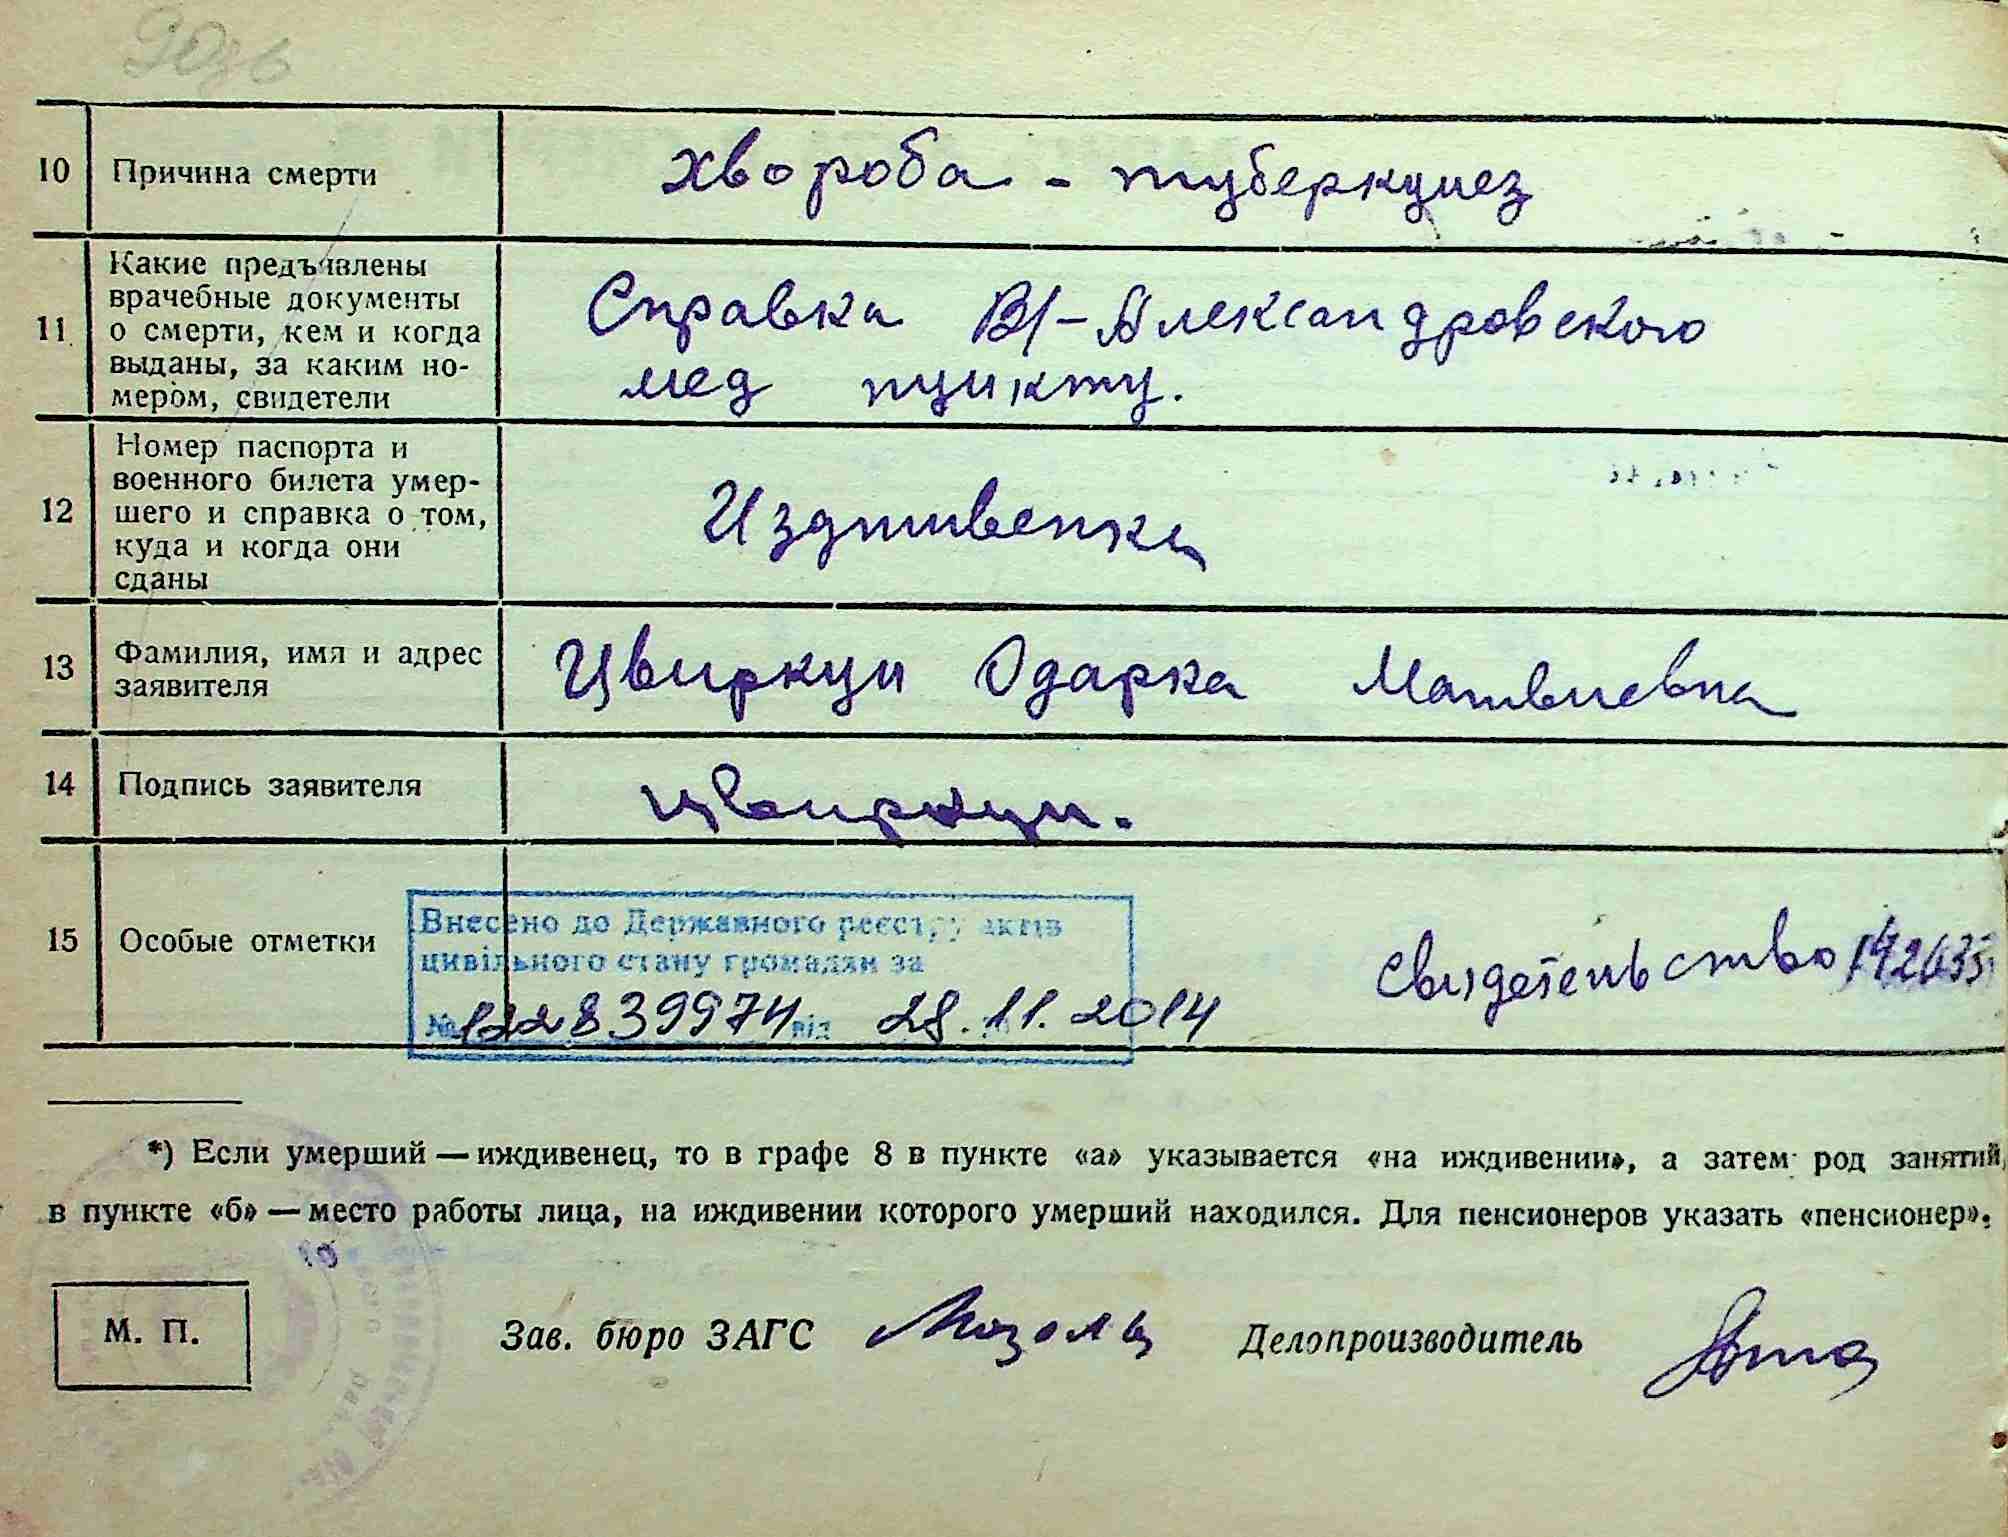 10 Причина смерти хвороба - туберкулез
11 Какие предъявлены
врачебные документы
о смерти, кем и когда
выданы, за каким но-
мером, свидетели
Справка В/-Александровского
мед пункту.
12 Номер паспорта и
военного билета умер-
шего и справка о том,
куда и когда они
сданы
Издтивенка
13 Фамилия, имя и адрес
заявителя
Цвиркун Одарка Матвиевна
14 Подпись заявителя Цвиркун.
15 Особые отметки
Внесено до Державного реєстру актів
цивільного стану громадян за
№ 122839974 від 28.11.2014
свидетельство
*) Если умерший — иждивенец, то в графе 8 в пункте «а» указывается «на иждивении», а затем род занятий,
в пункте «б» — место работы лица, на иждивении которого умерший находился. Для пенсионеров указать «пенсионер».
М. П.
Зав. бюро ЗАГС Делопроизводитель